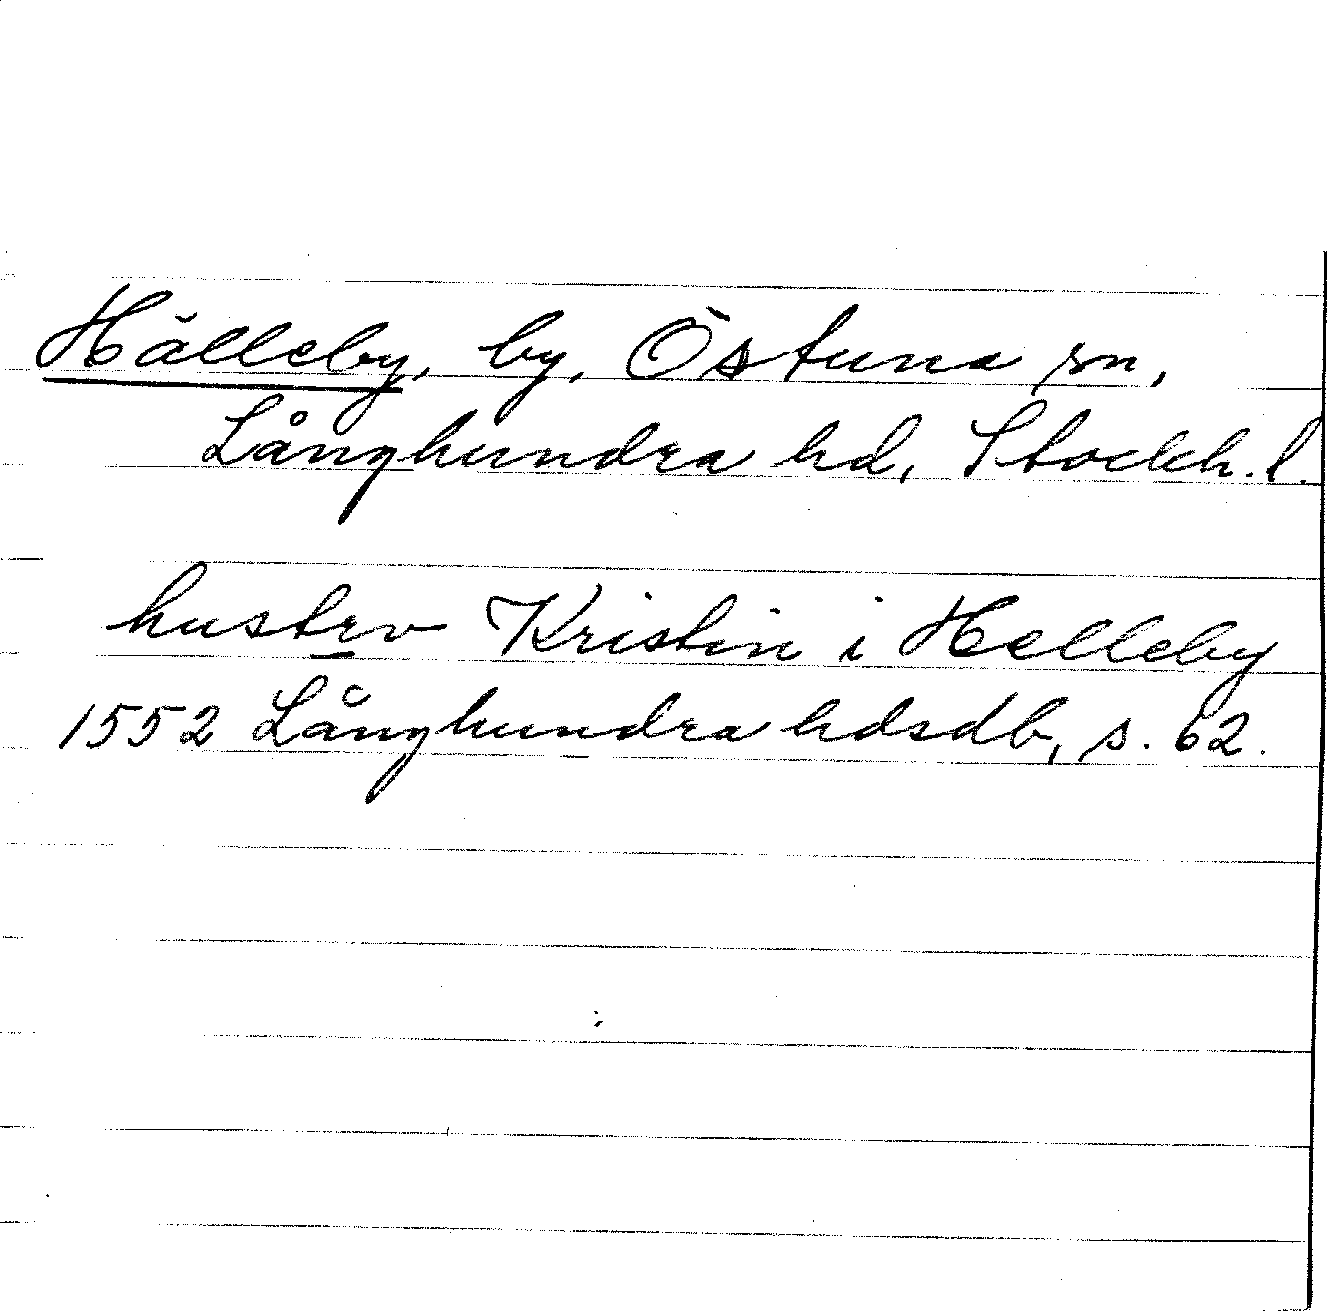 Hälleby, by, Östuna sn,
Långhundra hd, Stockh. l.
hustrv Kristin i Helleby
1552 Långhundra hdsdb, s. 62.